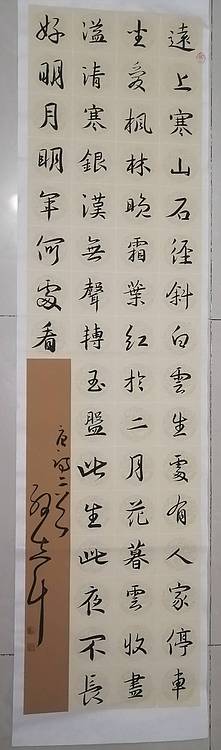 遠上寒山石径斜白雲生處有人家停車
坐愛楓林晚霜葉紅於二月花暮雲收盡
溢清寒銀漢無聲轉玉盤此生此夜不長
好明月明年何處看
唐詩二首